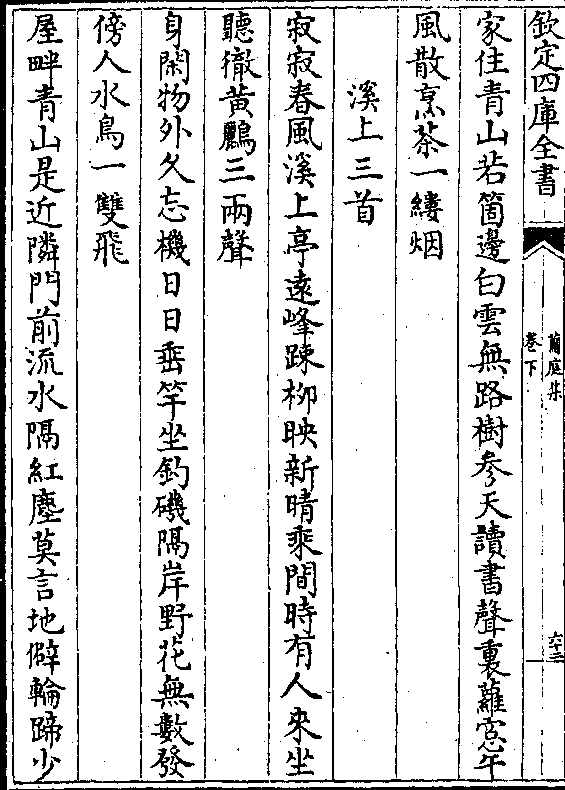 欽定四庫全書
蘭庭集
卷下
六十二
家住青山若箇邊白雲無路樹參天讀書聲裏蘿窓午
風散烹茶一縷烟
溪上三首
寂寂春風溪上亭遠峰踈柳映新晴乘間時有人來坐
聽徹黃鸝三兩聲
身閑物外久忘機日日垂竿坐釣磯隔岸野花無數發
傍人水鳥一雙飛
屋畔青山是近隣門前流水隔紅塵莫言地僻輪蹄少